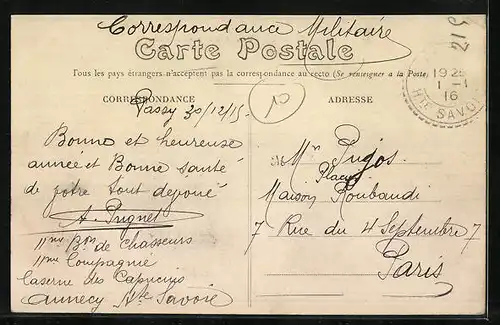 Correspondance Militaire
Carte Postale
Tous les pays étrangers n'acceptent pas la correspondance au recto (Se renseigner à la Poste)
CORRESPONDANCE
ADRESSE
Passy 30/12/15.
Bonne et heureuse
année et Bonne santé
de votre tout dévoué
A. Pugnet
11me Bon de Chasseurs
11me Compagnie
Caserne des Capucins
Annecy Hte Savoie
10
Mr
Place
Maison Roubaudi
7 Rue du 4 Septembre 7
Paris
215
1924
1 - 1
16
HTE SAVOIE